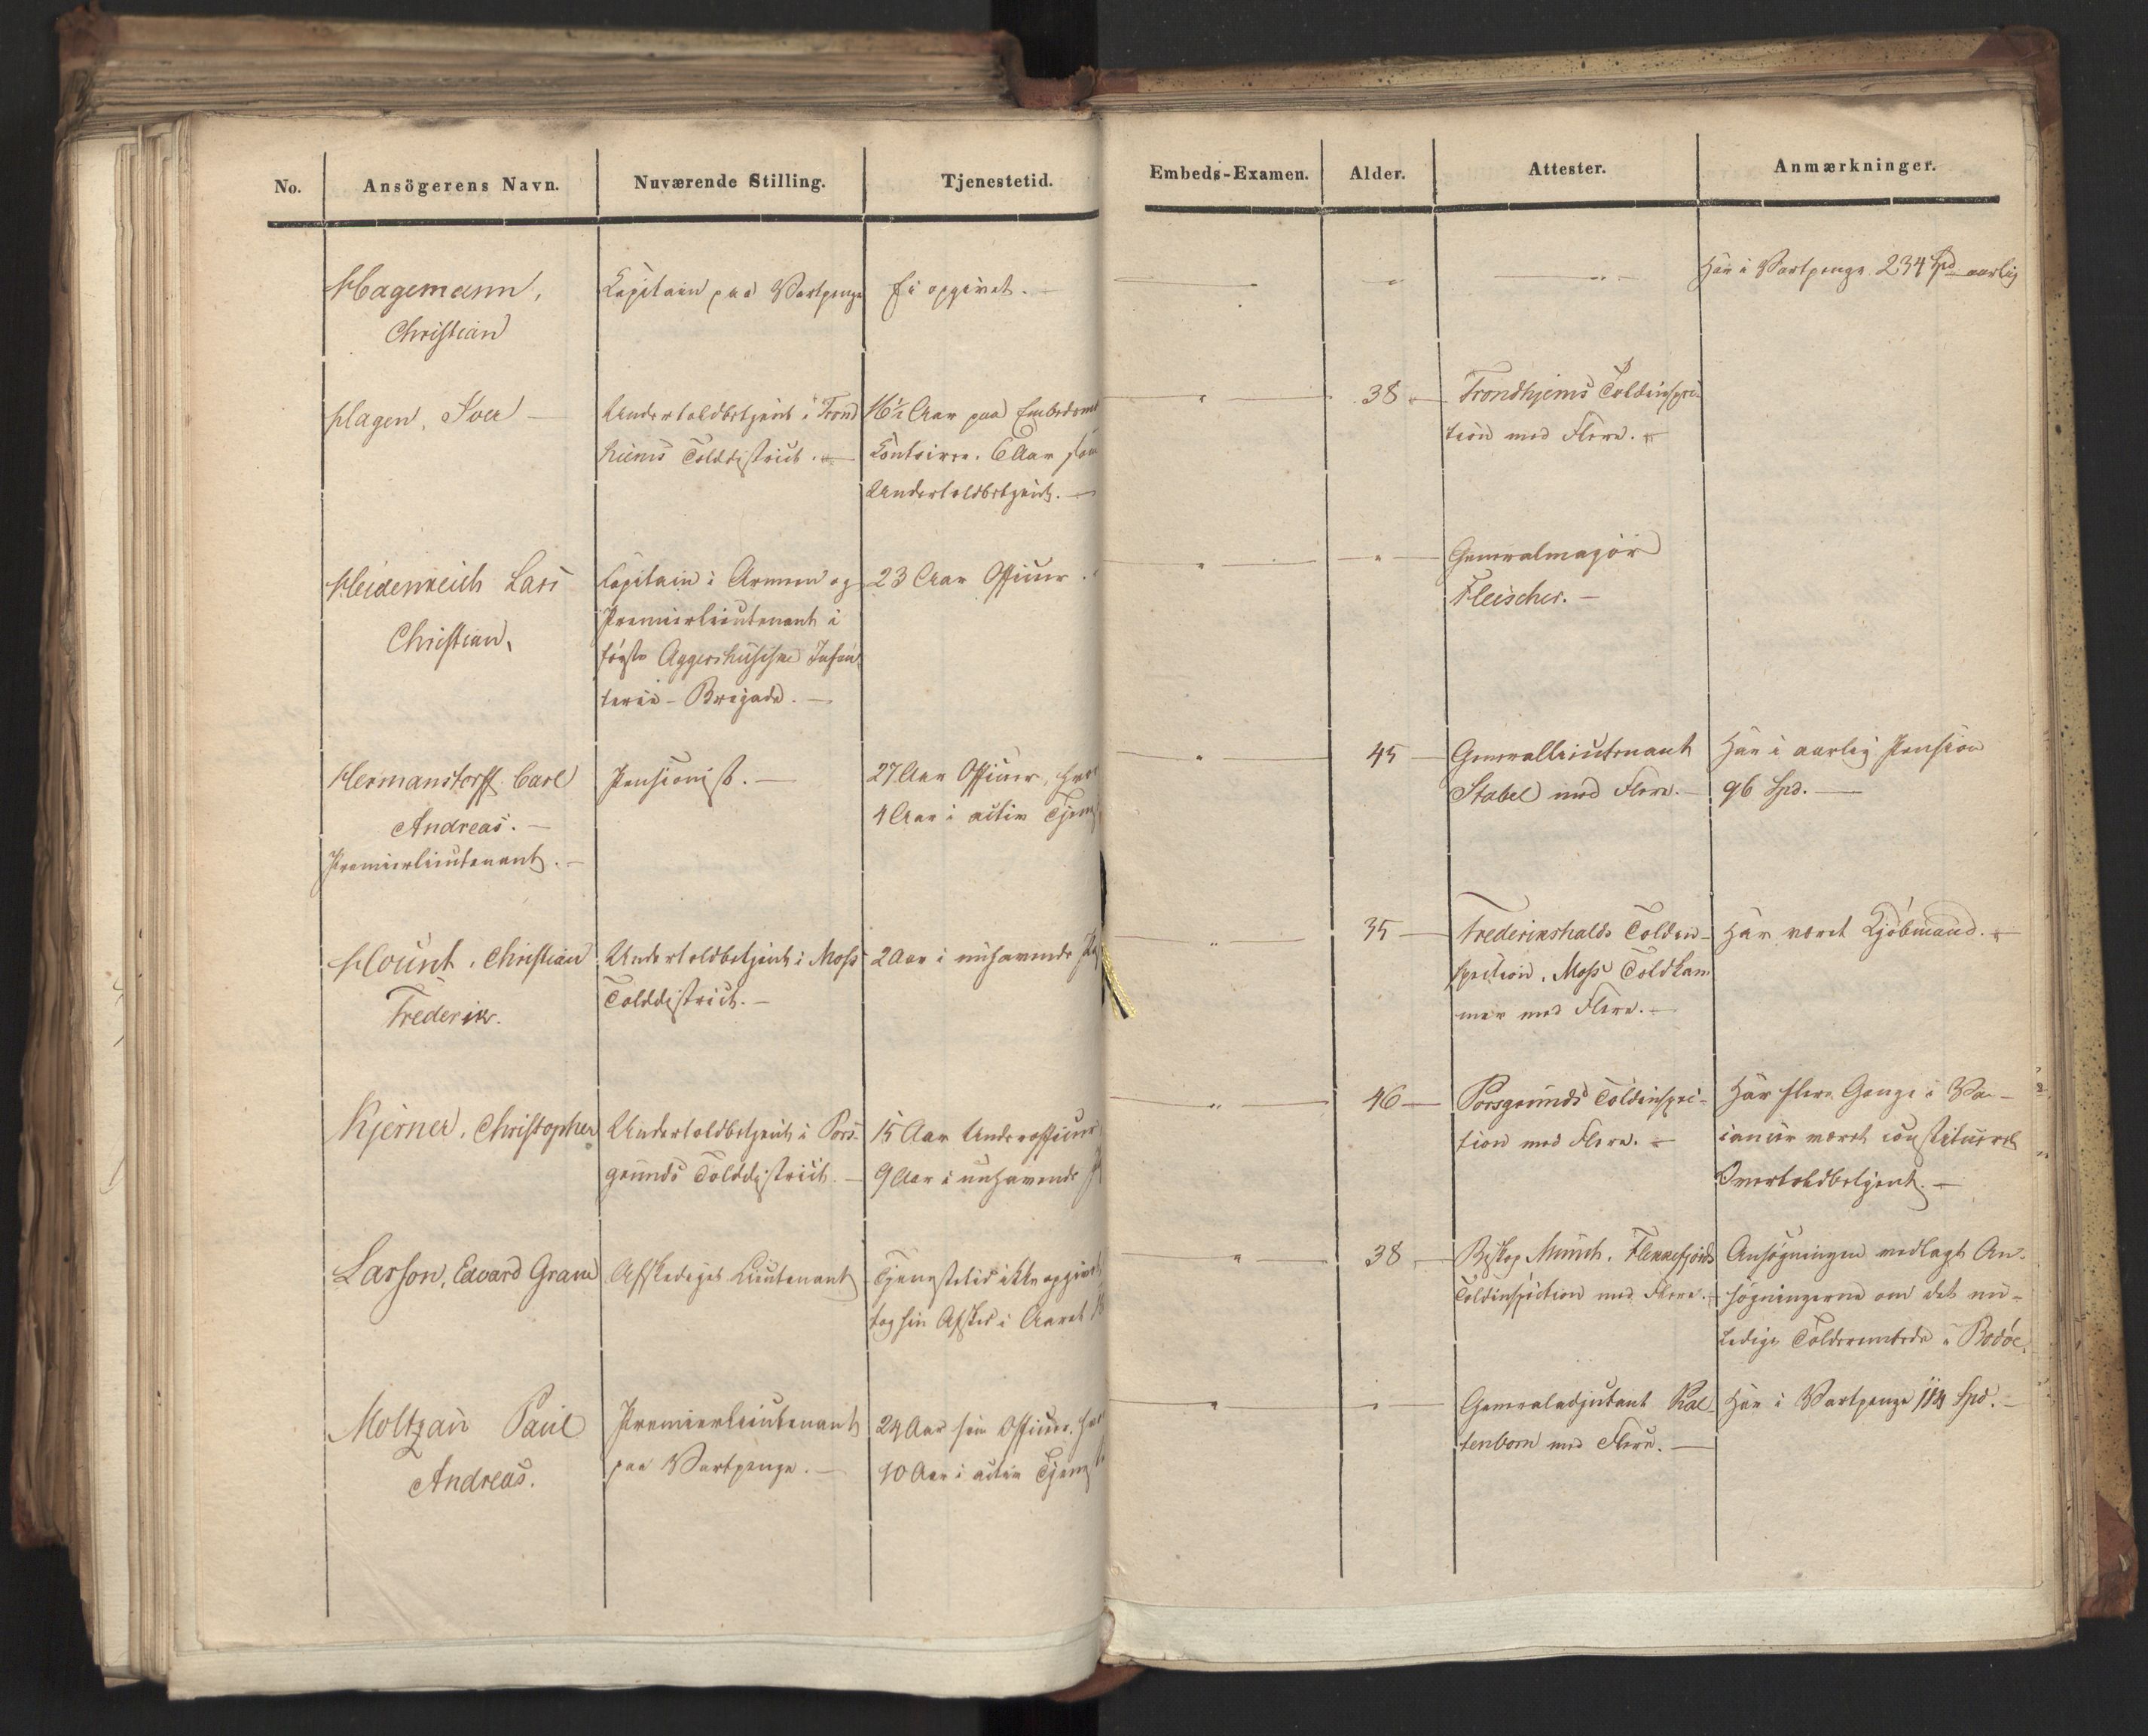 No.
Ansögerens Navn.
Nuværende Stilling.
Tjenestetid.
Embeds-Examen.
Alder.
Attester.
Anmærkninger.
Hagemann,
Christian
Capitain paa Vartpenge
Ei opgivet. -
Har i Vartpenge 234 Spd aarlig
Hagen, Iver -
Undertoldbetjent i Trond
hiems Tolddistrict. -
16½ Aar paa Embeds
Contoirer. 6 Aar som
Undertoldbetjent. -
38 -
Trondhjems Toldinspec-
tion med Flere. -
Heidenreich Lars
Christian.
Capitain i Armeen og
Premierlieutenant i
første Aggershusiske Infan
terie-Brigade. -
23 Aar Officier.
Generalmajor
Fleischer. -
Hermanstorff Carl
Andreas. -
Premierlieutenant. -
Pensionist. -
27 Aar Officier,
4 Aar i activ
45 -
Generallieutenant
Stabel med Flere. -
Har i aarlig Pension
96 Spd. -
Hount, Christian
Frederik.
Undertoldbetjent i Moss
Tolddistrict. -
2 Aar i nuhavende
35 -
Frederikshalds Toldin-
spection. Moss Toldkam
mer med Flere. -
Har været Kjøbmand. -
Kjerner, Christopher
Undertoldbetjent i Pors-
grunds Tolddistrict. -
15 Aar Underofficier
9 Aar i nuhavende
46 -
Porsgrunds Toldinspec-
tion med Flere. -
Har flere Gange i Va-
cancer været constitueret
Overtoldbetjent. -
Larson, Edvard Gram
Afskediget Lieutenant
Tjenestetid ikke opgivet
tog sin Afsked i Aaret
38 -
Biskop Munch. Flekkefjords
Toldinspection med Flere. -
Ansøgningen vedlagt An-
søgningerne om det nu-
ledige Tolderembede i Bodøe.
Moltzau Paul
Andreas.
Premierlieutenant
paa Vartpenge. -
24 Aar som Officier.
10 Aar i activ
Generaladjutant Kal
tenborn med Flere. -
Har i Vartpenge 114 Spd. -